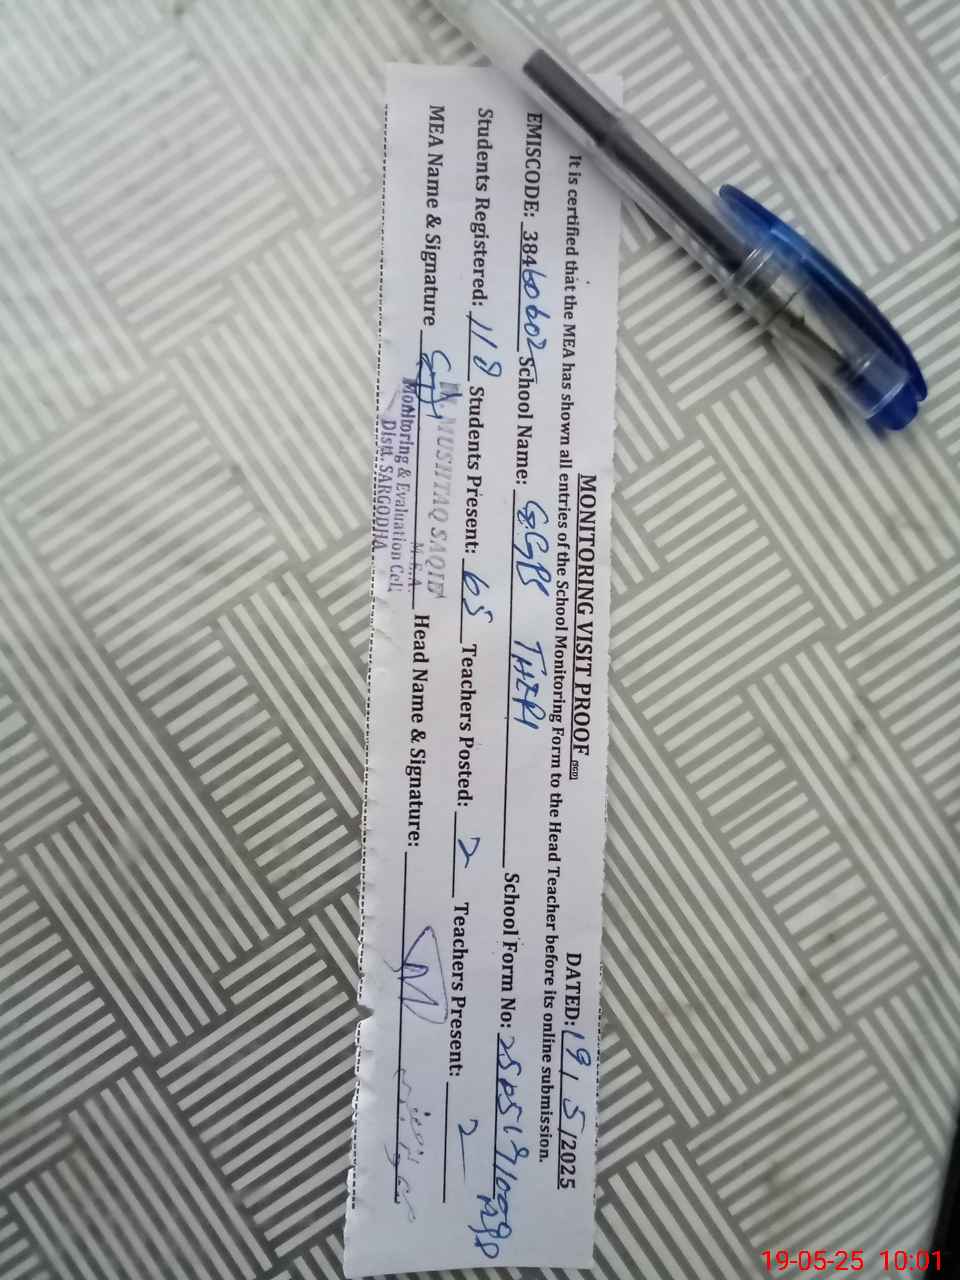 MONITORING VISIT PROOF (SGD) DATED: 19/5/2025
It is certified that the MEA has shown all entries of the School Monitoring Form to the Head Teacher before its online submission.
EMISCODE: 38460602 School Name: GGPS THERI School Form No:
Students Registered: 118 Students Present: 65 Teachers Posted: 2 Teachers Present: 2
MEA Name & Signature Head Name & Signature:
MUSHTAQ SAQIB
M.E.A.
Monitoring & Evaluation Cell
Distt. SARGODHA
19-05-25 10:01